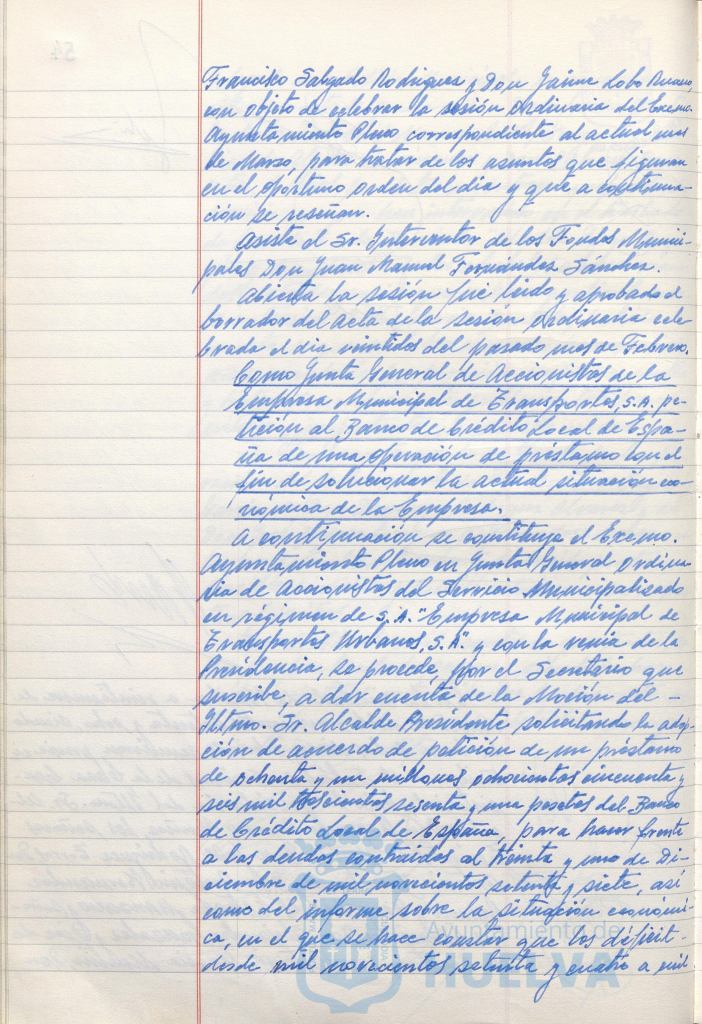 Francisco Salgado Rodríguez y Don Jaime Lobo
con objeto de celebrar la sesión ordinaria del Excmo.
Ayuntamiento Pleno correspondiente al actual mes
de Marzo, para tratar de los asuntos que figuran
en el oportuno orden del día y que a continua-
ción se reseñan.
Asiste el Sr. Interventor de los Fondos Munici-
pales Don Juan Manuel Fernández Sánchez.
Abierta la sesión fué leído y aprobado el
borrador del acta de la sesión ordinaria cele-
brada el día veintidos del pasado mes de Febrero.
Como Junta General de Accionistas de la
Empresa Municipal de Transportes, S.A, pe-
tición al Banco de Crédito Local de Espa-
ña de una operación de préstamo con el
fin de solucionar la actual situación eco-
nómica de la Empresa.
A continuación se constituye el Excmo.
Ayuntamiento Pleno en Junta General Ordina-
ria de Accionistas del Servicio Municipalizado
en régimen de S.A. "Empresa Municipal de
Transportes Urbanos, S.A." y con la venia de la
Presidencia, se procede, por el Secretario que
suscribe, a dar cuenta de la Moción del -
Iltmo. Sr. Alcalde Presidente solicitando la adop-
ción de acuerdo de petición de un préstamo
de ochenta y un millones ochocientas cincuenta y
seis mil trescientas sesenta y una pesetas del Banco
de Crédito Local de España, para hacer frente
a las deudas contraidas al treinta y uno de Di-
ciembre de mil novecientos setenta y siete, así
como del informe sobre la situación económi-
ca, en el que se hace constar que los déficit -
desde mil novecientos setenta y cuatro a mil
Ayuntamiento de
HUELVA